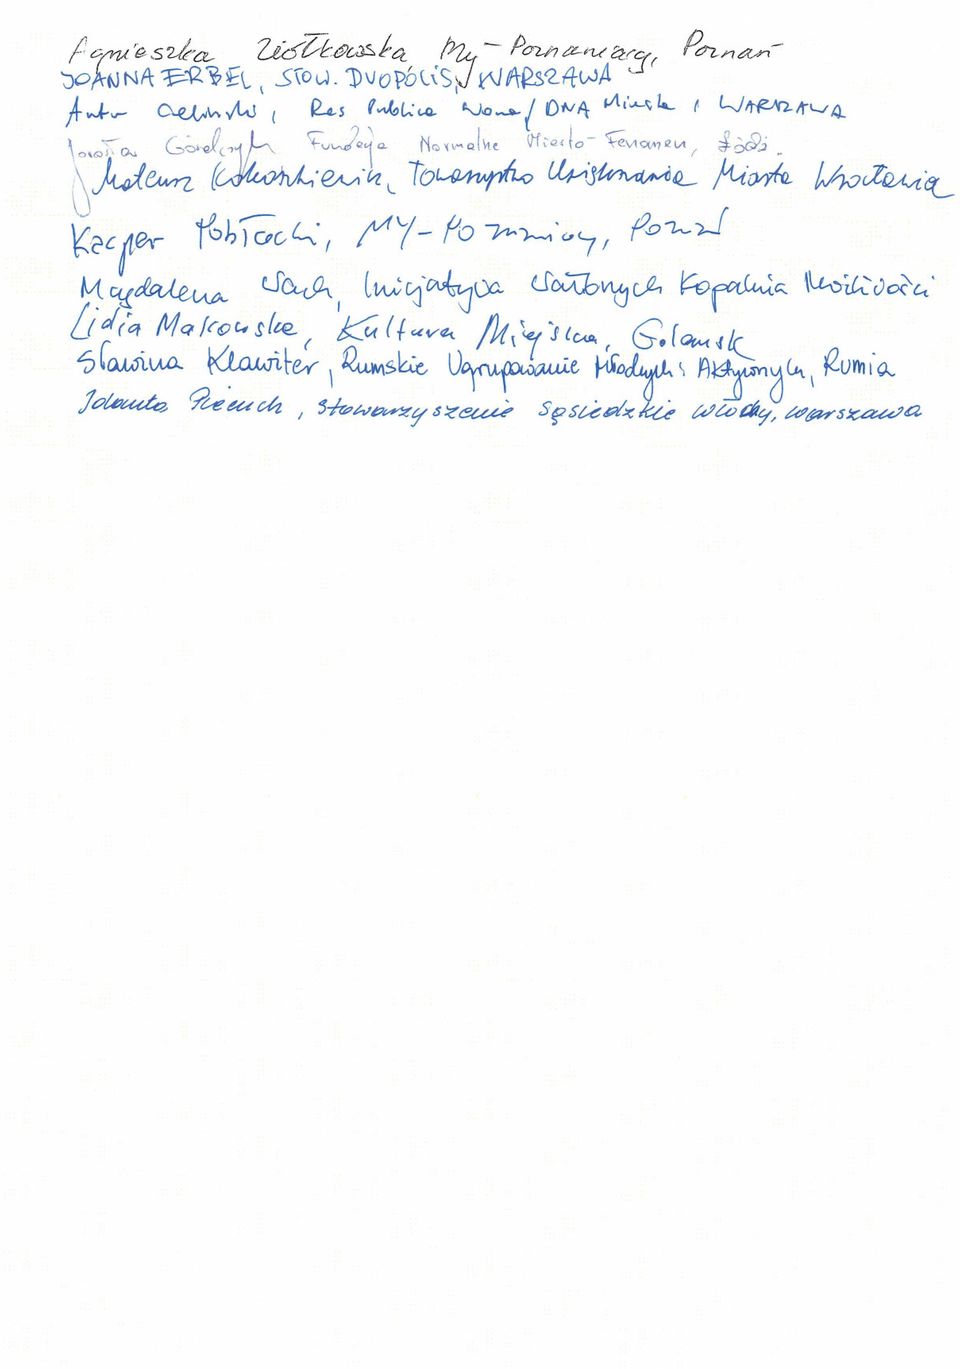 Agnieszka Ziółkowska, My-Poznaniacy, Poznań
JOANNA ERBEL, STOW. DUOPOLIS, WARSZAWA
Artur Celiński, Res Publica Nowa / DNA Miasta, WARSZAWA
Jarosław Góralczyk Fundacja Normalne Miasto-Fenomen, Łódź.
Mateusz Kokoszkiewicz, Towarzystwo Upiększania Miasta Wrocławia
Kacper Pobłocki, MY-Poznaniacy, Poznań
Magdalena Wach, Inicjatywa Kopalnia Możliwości
Lidia Makowska, Kultura Miejska, Gdańsk
Sławina Klawiter, Rumskie Ugrupowanie Młodych i Aktywnych, Rumia
Jolanta Piecuch, Stowarzyszenie Sąsiedzkie Włochy, Warszawa